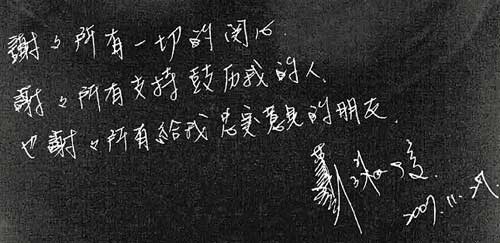 謝々所有一切的関心.
謝々所有支持鼓历我的人.
也謝々所有給我忠实意見的朋友.